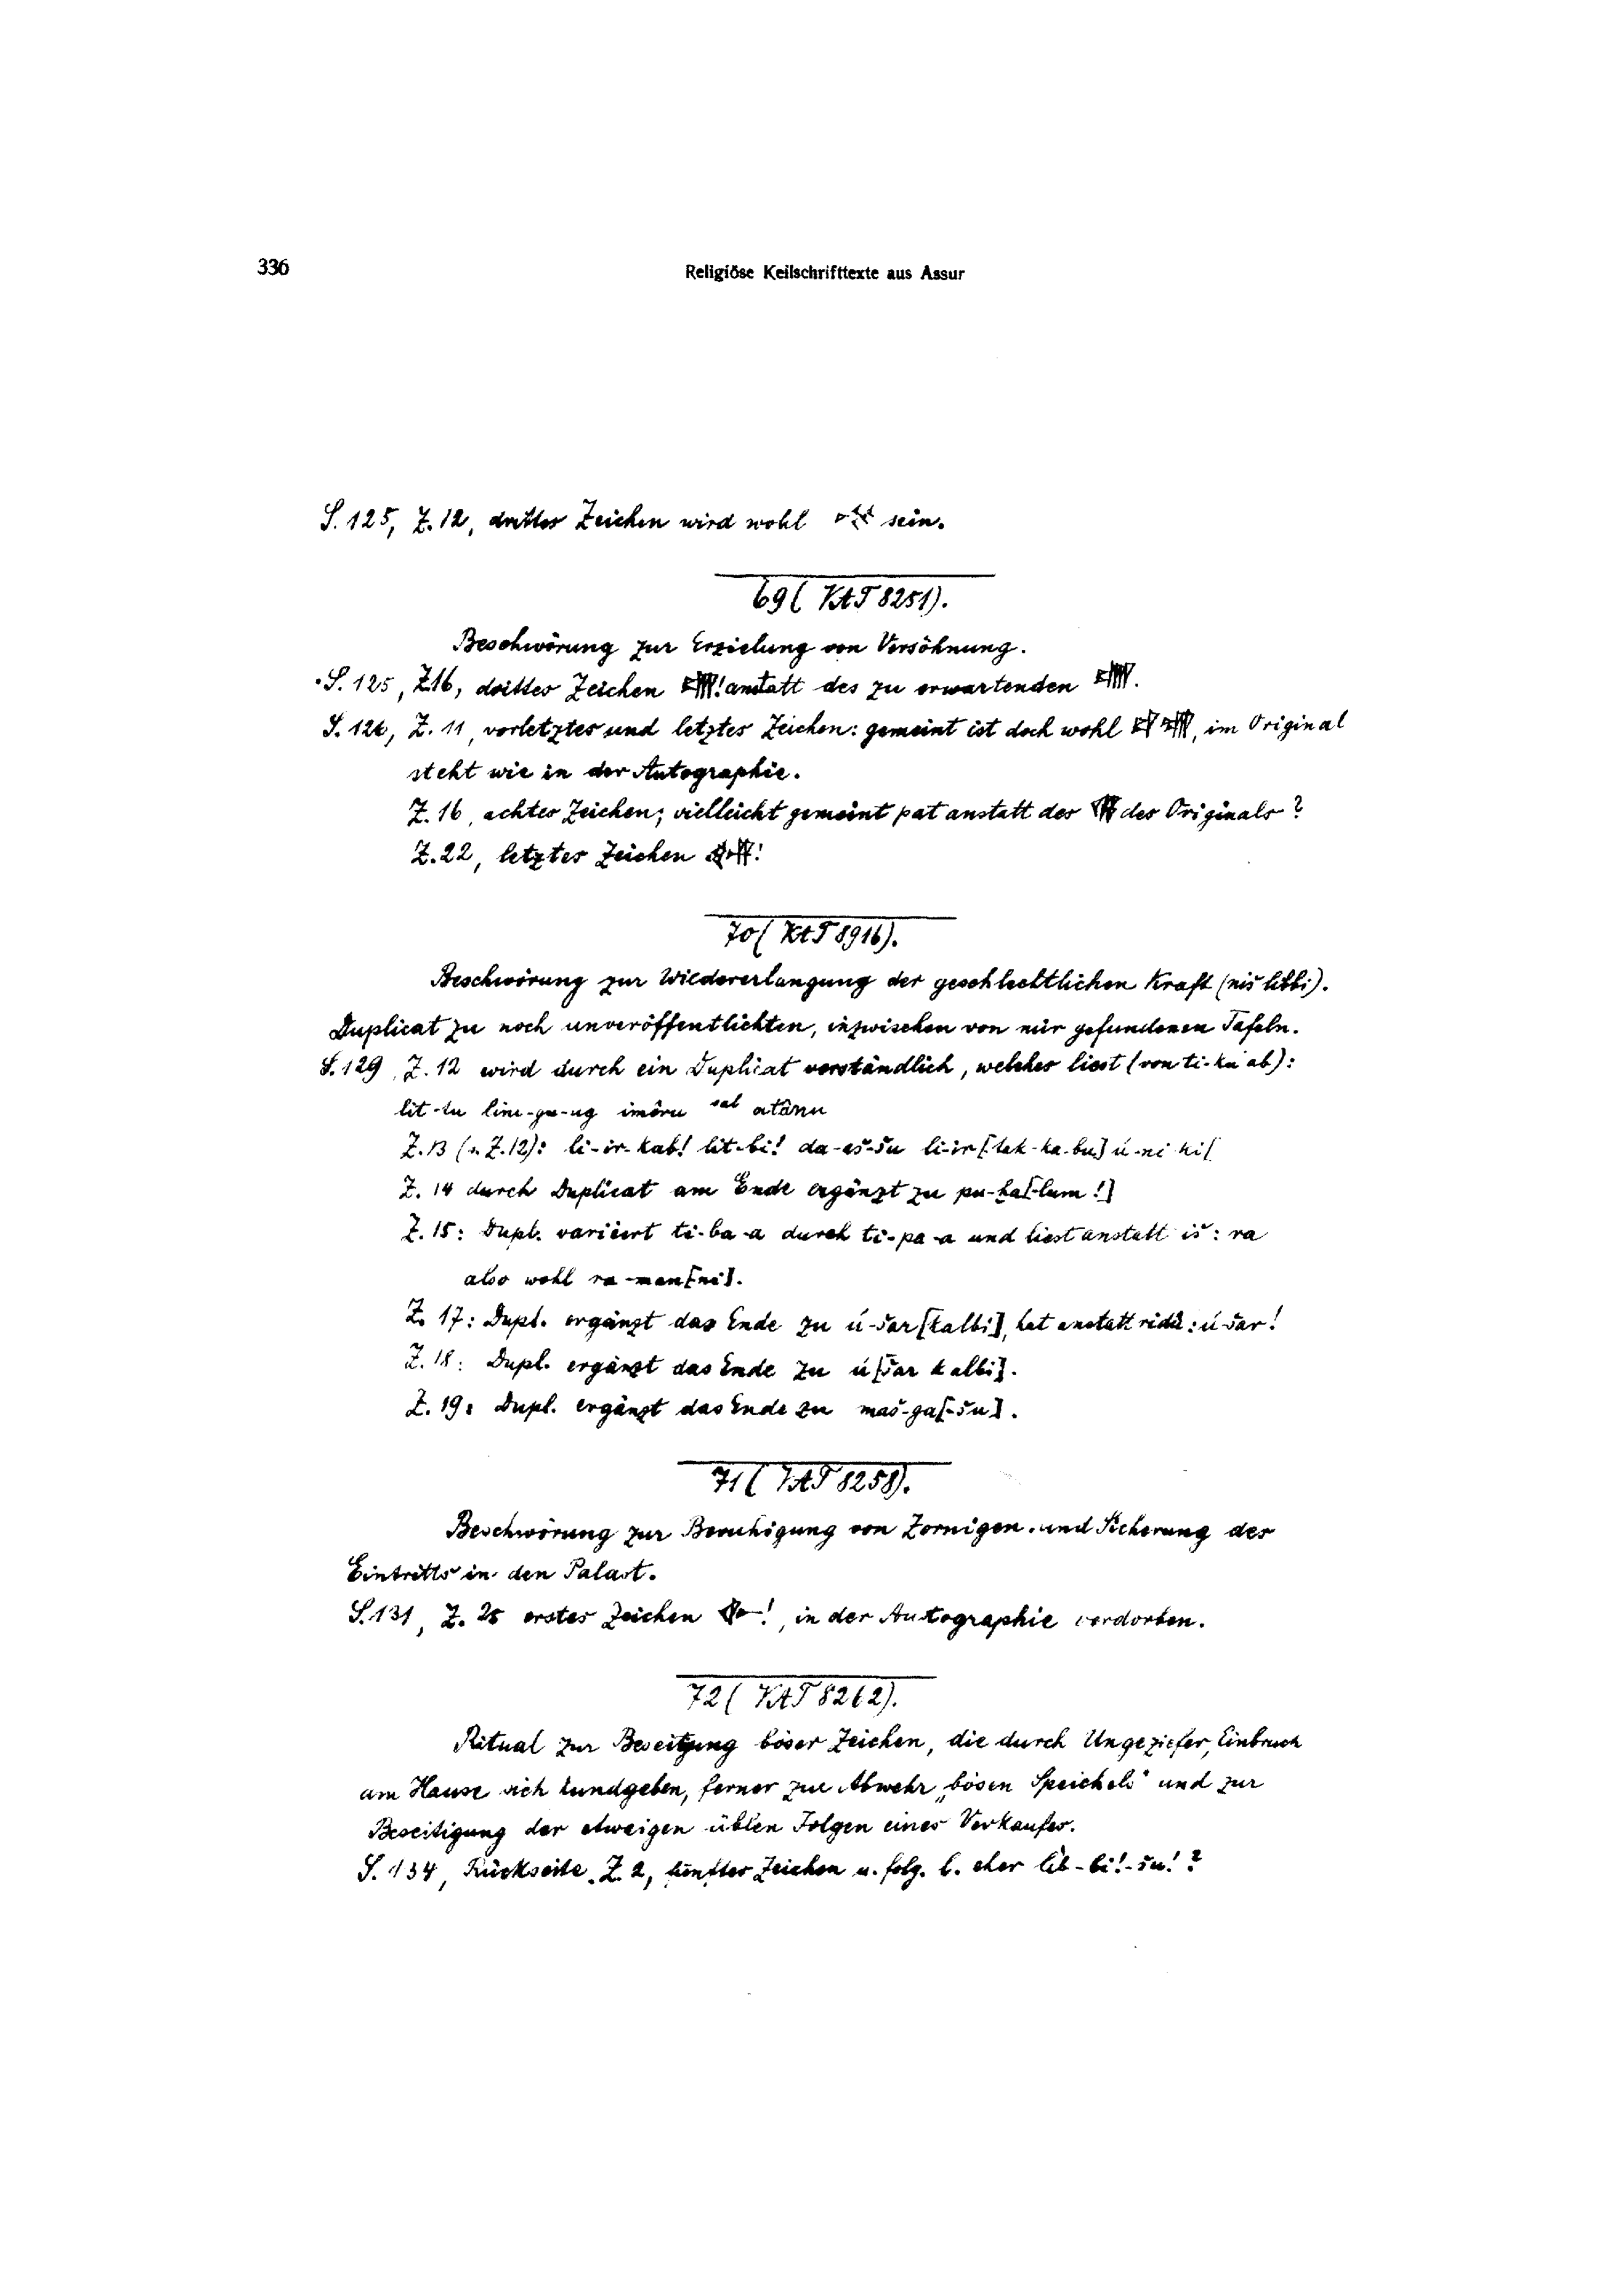 336
Religiöse Keilschrifttexte aus Assur
S. 125, Z. 12, drittes Zeichen wird wohl sein.
69 (VAT 8251).
Beschwörung zur Erzielung von Versöhnung.
S. 125, Z. 16, drittes Zeichen ! anstatt des zu erwartenden .
S. 126, Z. 11, vorletztes und letztes Zeichen: gemeint ist doch wohl , im Original
steht wie in der Autographie.
Z. 16, achtes Zeichen; vielleicht gemeint pat anstatt des des Originals?
Z. 22, letztes Zeichen !
70 (VAT 8916).
Beschwörung zur Wiedererlangung der geschlechtlichen Kraft (niš libbi).
Duplicat zu noch unveröffentlichten, inzwischen von mir gefundenen Tafeln.
S. 129, Z. 12 wird durch ein Duplicat verständlich, welches liest (von ti-ku ab):
lit-bu lim-gu-ug imêru sal atânu
Z. 13 (u. Z. 12): li-ir-kab! lit-bi! da-es-su li-ir[-tak-ka-bu] ú-ni ki[
Z. 14 durch Duplicat am Ende ergänzt zu pu-ḫa[-lum!]
Z. 15: Dupl. variiert ti-ba-a durch ti-pa-a und liest anstatt iš: ra
also wohl ra-man[ni].
Z. 17: Dupl. ergänzt das Ende zu ú-šar [kalbi], hat anstatt ridû: ú-šar!
Z. 18: Dupl. ergänzt das Ende zu ú[šar kalbi].
Z. 19: Dupl. ergänzt das Ende zu maš-ga[-šu].
71 (VAT 8258).
Beschwörung zur Beruhigung von Zornigen und Sicherung des
Eintritts in den Palast.
S. 131, Z. 25 erstes Zeichen !, in der Autographie verdorben.
72 (VAT 8262).
Ritual zur Beseitgung böser Zeichen, die durch Ungeziefer, Einbruch
am Hause sich kundgeben, ferner zur Abwehr „bösen Speichels“ und zur
Beseitigung der etwaigen üblen Folgen eines Verkaufes.
S. 134, Rückseite, Z. 2, fünftes Zeichen u. folg. l. eher lib-bi!-šu!?